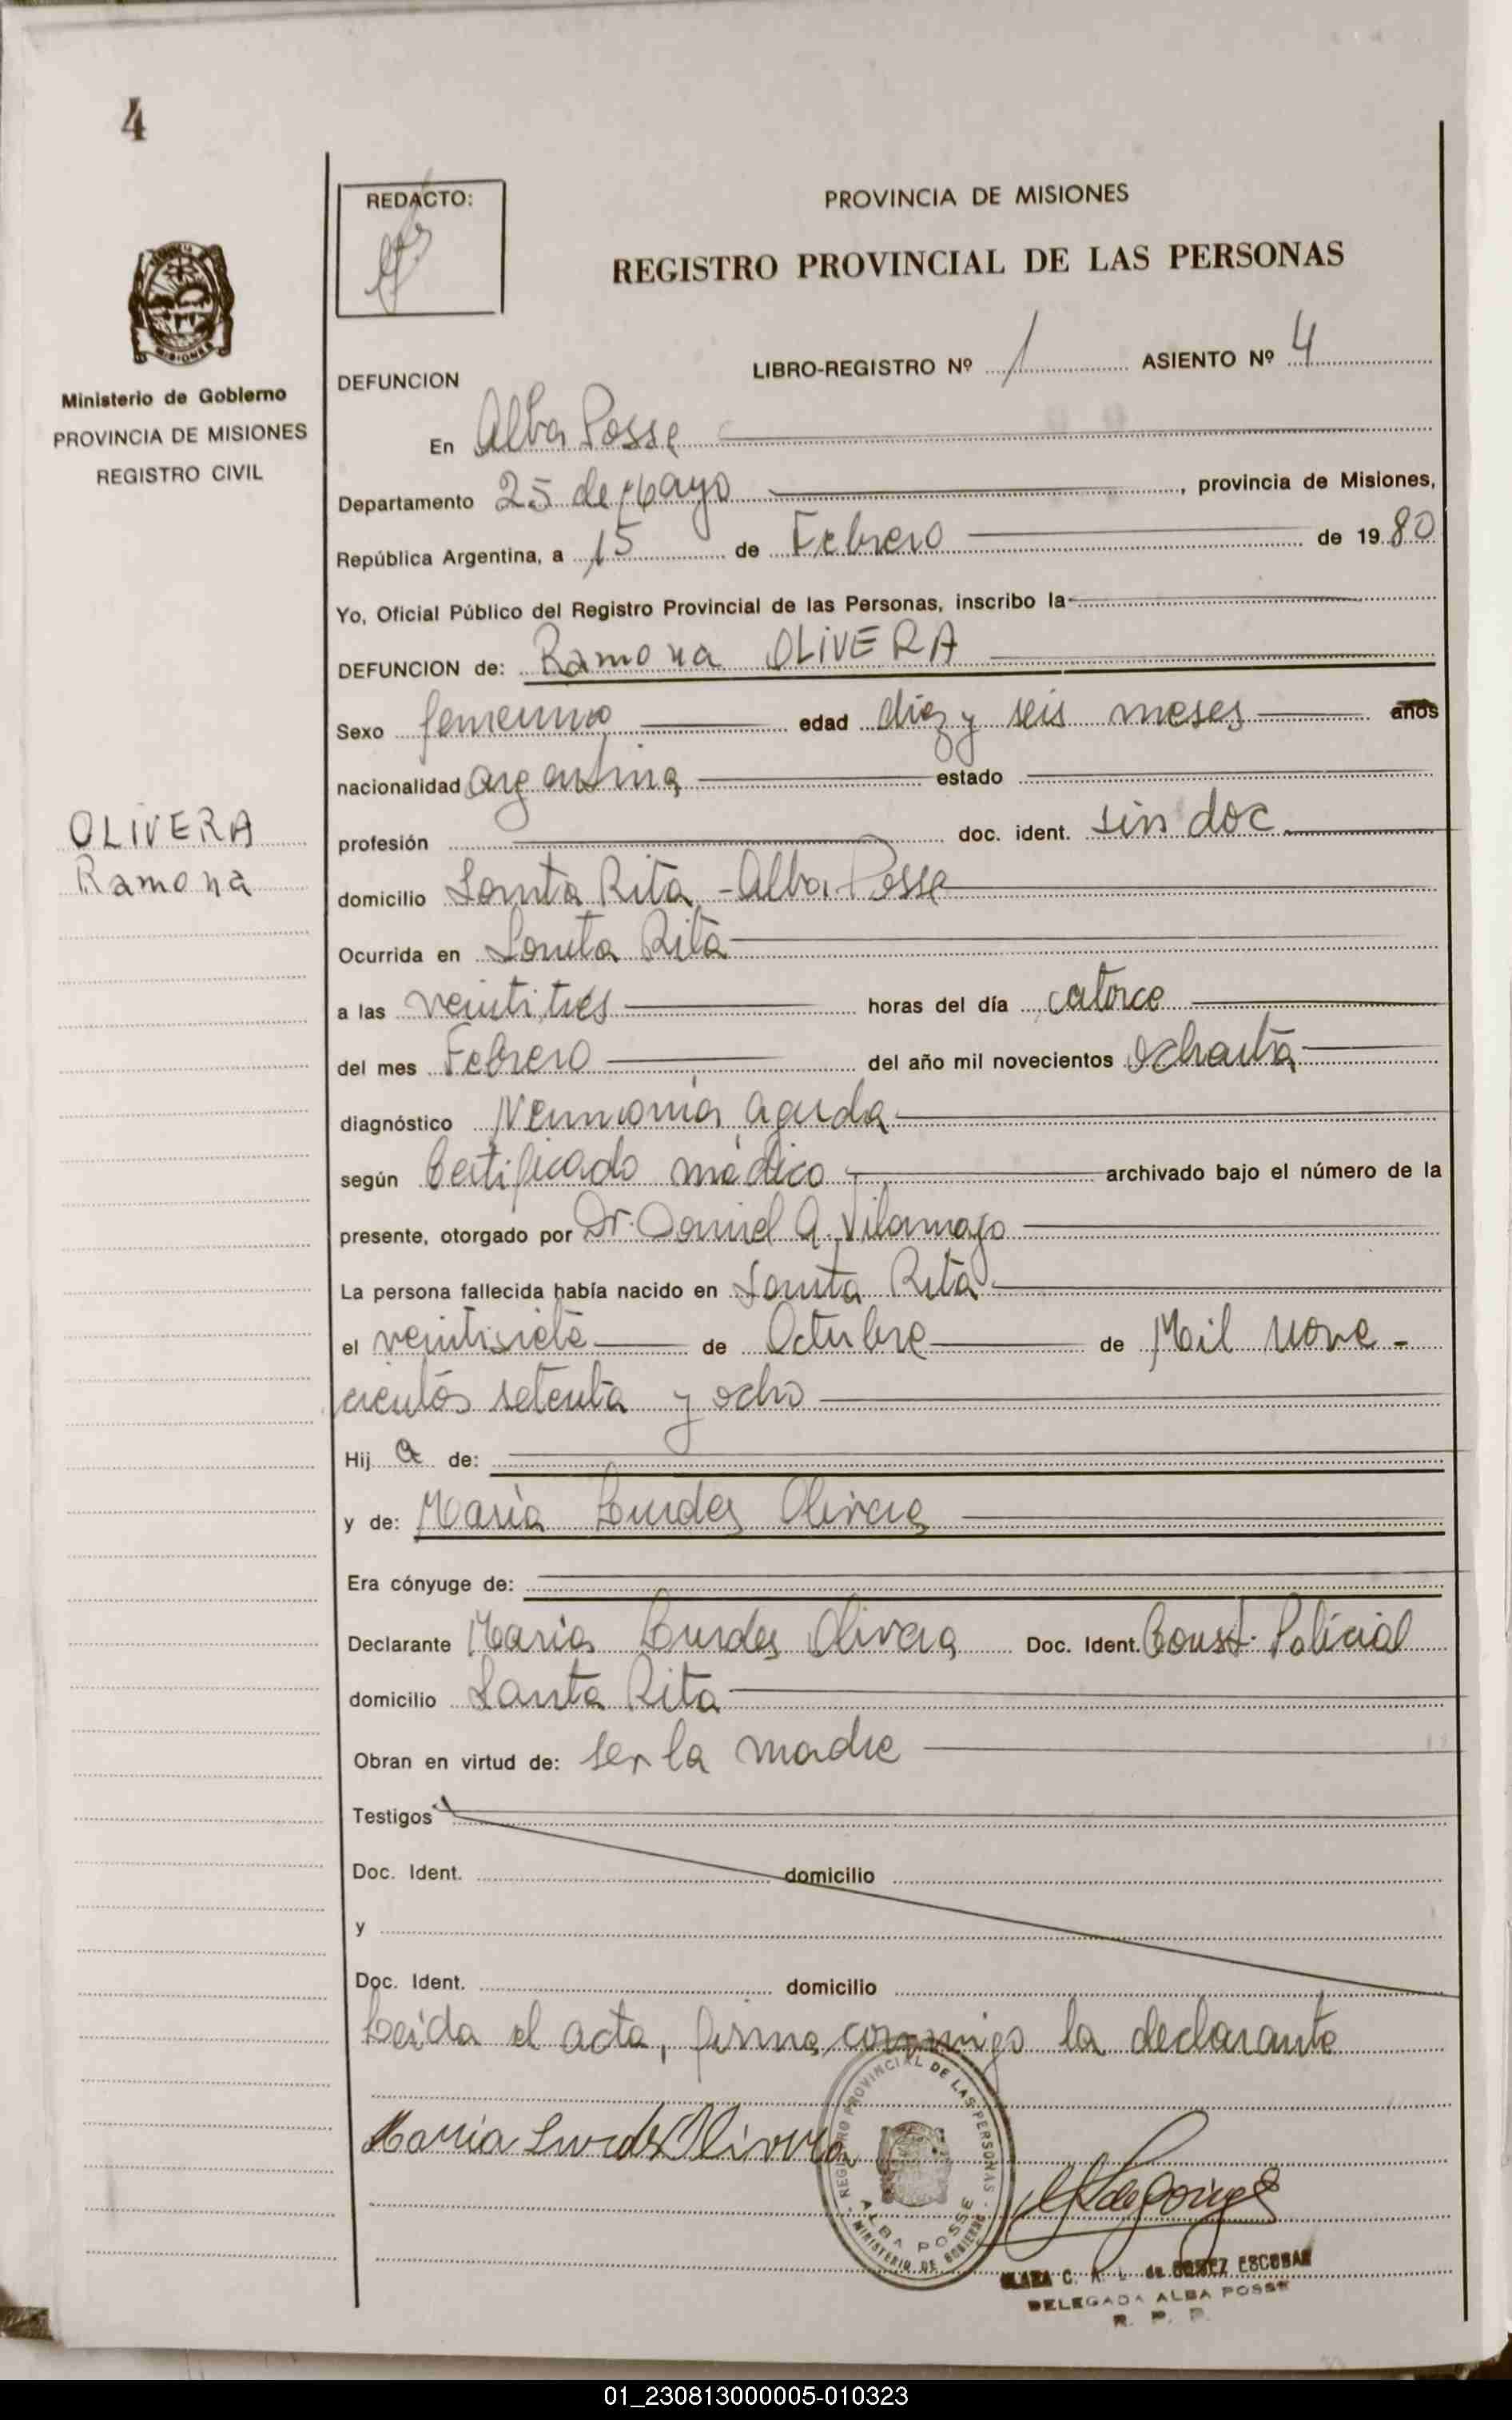 4
REDACTO:
PROVINCIA DE MISIONES
REGISTRO PROVINCIAL DE LAS PERSONAS
MISIONES
Ministerio de Gobierno
PROVINCIA DE MISIONES
REGISTRO CIVIL
LIBRO-REGISTRO Nº 1 ASIENTO Nº 4
DEFUNCION
En Alba Posse
Departamento 25 de Mayo, provincia de Misiones,
República Argentina, a 15 de Febrero de 1980
Yo, Oficial Público del Registro Provincial de las Personas, inscribo la
DEFUNCION de: Ramona OLIVERA
Sexo femenino edad diez y seis meses años
nacionalidad argentina estado
OLIVERA
Ramona
profesión doc. ident. sin doc
domicilio Santa Rita - Alba Posse
Ocurrida en Santa Rita
a las veintitrés horas del día catorce
del mes Febrero del año mil novecientos ochenta
diagnóstico Neumonía aguda
según Certificado médico archivado bajo el número de la
presente, otorgado por Dr. Daniel A. Vilamajo
La persona fallecida había nacido en Santa Rita
el veintisiete de Octubre de Mil nove-
cientos setenta y ocho
Hij a de:
y de: María Lourdes Olivera
Era cónyuge de:
Declarante María Lourdes Olivera Doc. Ident. Const. Policial
domicilio Santa Rita
Obran en virtud de: ser la madre
Testigos
Doc. Ident. domicilio
y
Doc. Ident. domicilio
Leída el acta, firma conmigo la declarante
Maria Lurdes Olivera
REGISTRO PROVINCIAL DE LAS PERSONAS
ALBA POSSE
MINISTERIO DE GOBIERNO
CLARA C. A. L. de GOMEZ ESCOBAR
DELEGADA ALBA POSSE
R. P. P.
01_230813000005-010323